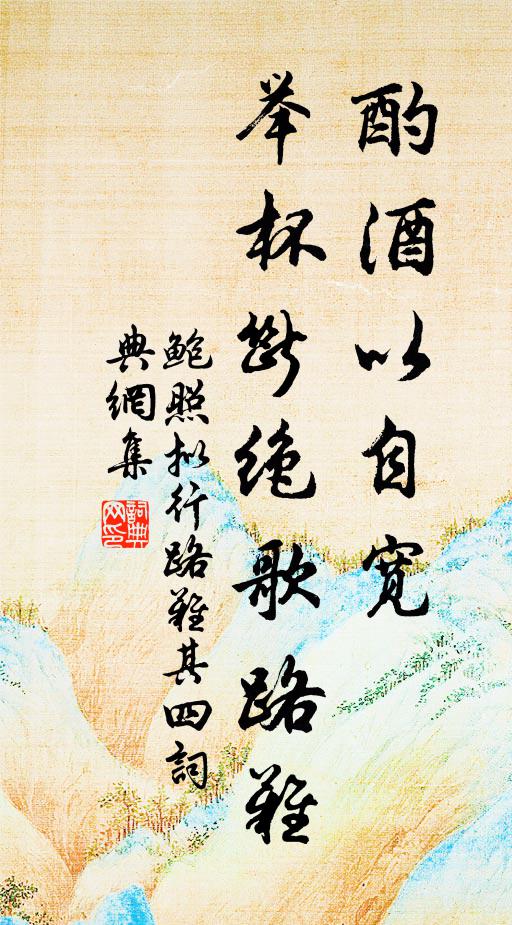 酌酒以自宽
举杯断绝歌路难
鲍照拟行路难其四词
典网集
词典
网印